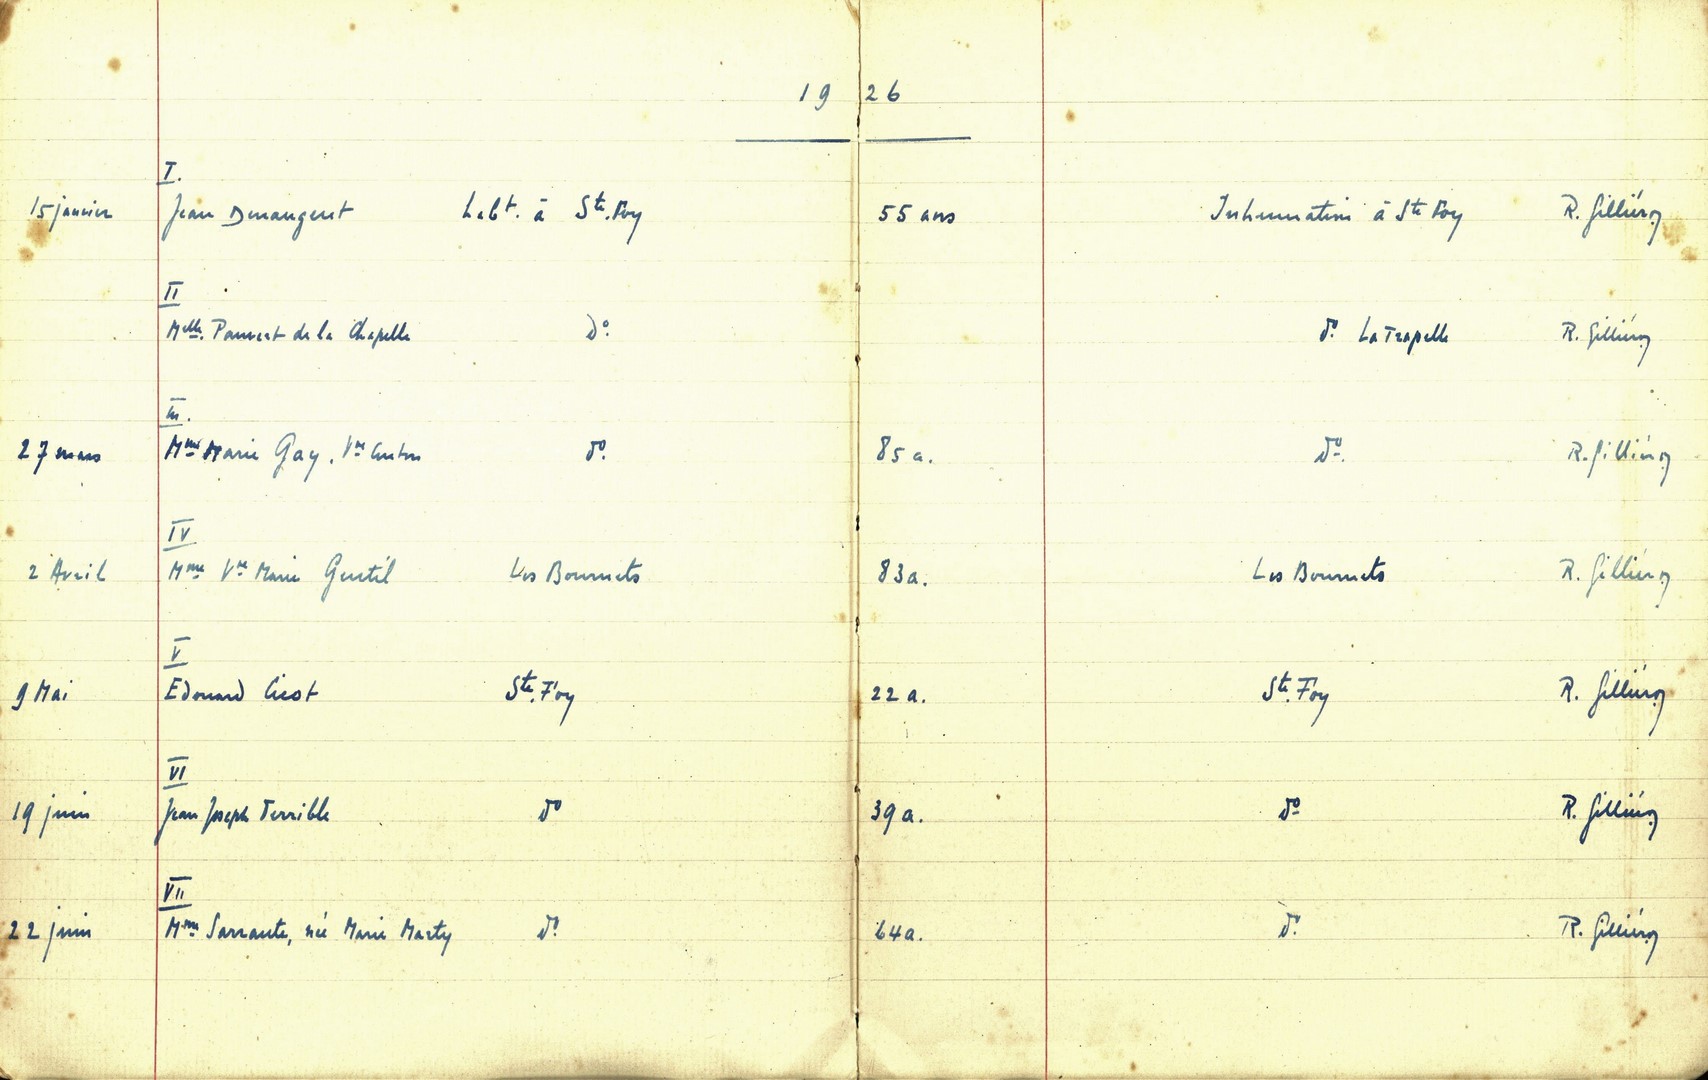 1926
I.
15 janvier Jean Demangent habt. à Ste. Foy 55 ans Inhumation à Ste Foy R. Gilliéron
II
Melle. de la Chapelle do. do. La Trapelle R. Gilliéron
III.
27 mars Mme Marie Gay, Vve do. 85 a. do. R. Gilliéron
IV
2 Avril Mme Vve Marie Gentil Les Bournets 83a. Les Bournets R. Gilliéron
V
9 Mai Edouard Ste. Foy 22 a. Ste. Foy R. Gilliéron
VI
19 juin Jean Joseph Terrible do 39 a. do R. Gilliéron
VII
22 juin Mme Sarraute, née Marie Marty do. 64a. do. R. Gilliéron